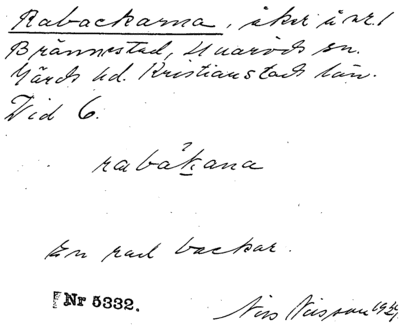 Rabackarna, åker å nr 1
Brännestad, Huaröds sn.
Gärds hd. Kristianstads län.
Vid 6.
rabåkana
En rad backar.
Nr 5332.
Nils Nilsson